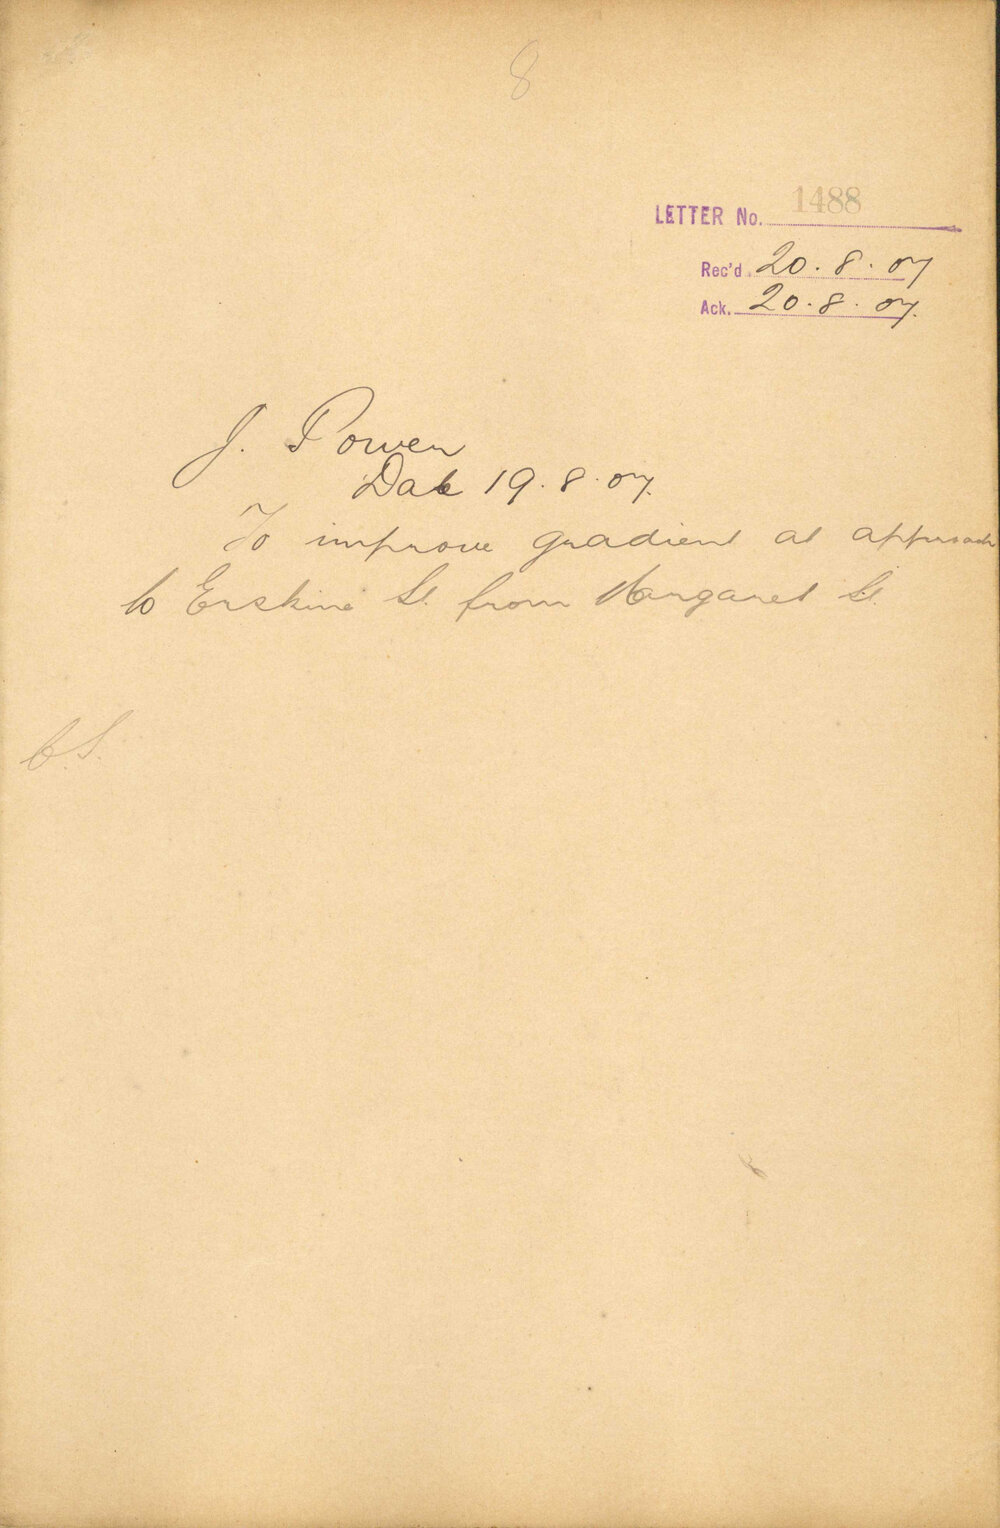 8
LETTER No. 1488
Rec'd. 20. 8. 07
Ack. 20. 8. 07.
J. Power
Date 19. 8. 07.
To improve gradient at approach
to Erskine St. from Margaret St.
C.S.